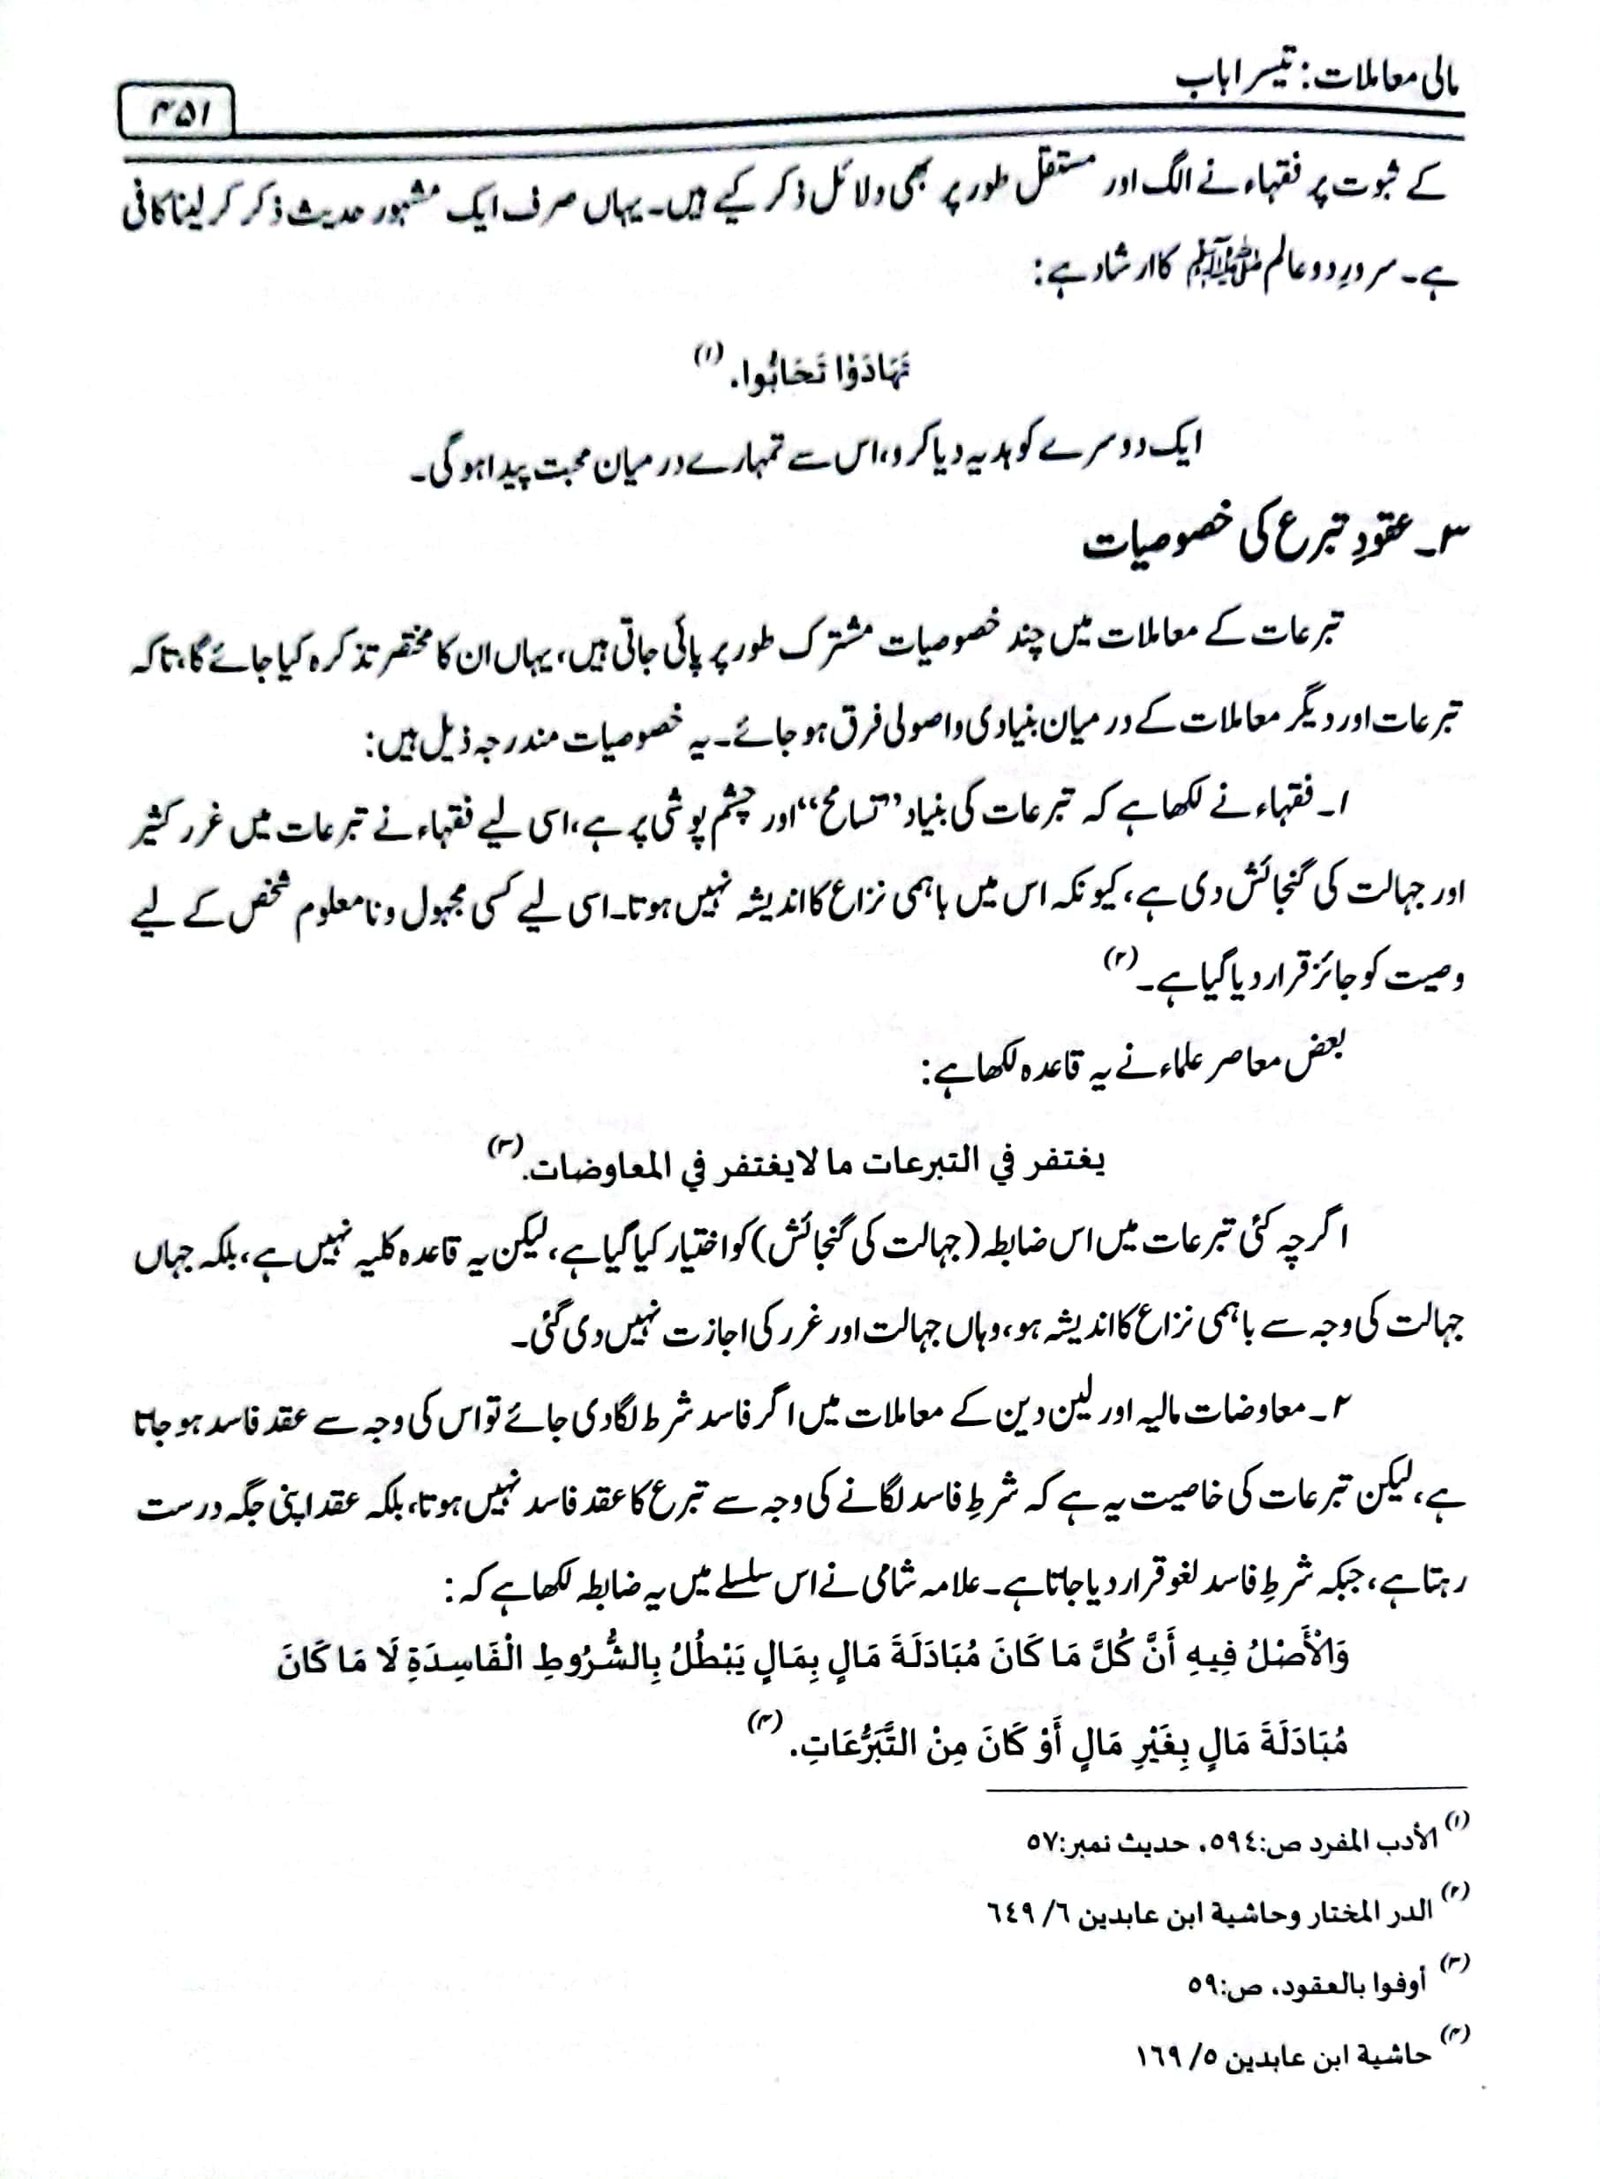 مالی معاملات: تیسرا باب
۴۵۱
کے ثبوت پر فقہاء نے الگ اور مستقل طور پر بھی دلائل ذکر کیے ہیں۔ یہاں صرف ایک مشہور حدیث ذکر کر لینا کافی
ہے۔ سرورِ دو عالم ﷺ کا ارشاد ہے:
تَهَادَوْا تَحَابُّوا. (۱)
ایک دوسرے کو ہدیہ دیا کرو، اس سے تمہارے درمیان محبت پیدا ہوگی۔
۳۔ عقودِ تبرع کی خصوصیات
تبرعات کے معاملات میں چند خصوصیات مشترک طور پر پائی جاتی ہیں، یہاں ان کا مختصر تذکرہ کیا جائے گا، تاکہ
تبرعات اور دیگر معاملات کے درمیان بنیادی و اصولی فرق ہو جائے۔ یہ خصوصیات مندرجہ ذیل ہیں:
۱۔ فقہاء نے لکھا ہے کہ تبرعات کی بنیاد ”تسامح“ اور چشم پوشی پر ہے، اسی لیے فقہاء نے تبرعات میں غرر کثیر
اور جہالت کی گنجائش دی ہے، کیونکہ اس میں باہمی نزاع کا اندیشہ نہیں ہوتا۔ اسی لیے کسی مجہول و نامعلوم شخص کے لیے
وصیت کو جائز قرار دیا گیا ہے۔ (۲)
بعض معاصر علماء نے یہ قاعدہ لکھا ہے:
يغتفر في التبرعات ما لا يغتفر في المعاوضات. (۳)
اگرچہ کئی تبرعات میں اس ضابطہ (جہالت کی گنجائش) کو اختیار کیا گیا ہے، لیکن یہ قاعدہ کلیہ نہیں ہے، بلکہ جہاں
جہالت کی وجہ سے باہمی نزاع کا اندیشہ ہو، وہاں جہالت اور غرر کی اجازت نہیں دی گئی۔
۲۔ معاوضات مالیہ اور لین دین کے معاملات میں اگر فاسد شرط لگا دی جائے تو اس کی وجہ سے عقد فاسد ہو جاتا
ہے، لیکن تبرعات کی خاصیت یہ ہے کہ شرطِ فاسد لگانے کی وجہ سے تبرع کا عقد فاسد نہیں ہوتا، بلکہ عقد اپنی جگہ درست
رہتا ہے، جبکہ شرطِ فاسد لغو قرار دیا جاتا ہے۔ علامہ شامی نے اس سلسلے میں یہ ضابطہ لکھا ہے کہ:
وَالْأَصْلُ فِيهِ أَنَّ كُلَّ مَا كَانَ مُبَادَلَةَ مَالٍ بِمَالٍ يَبْطُلُ بِالشُّرُوطِ الْفَاسِدَةِ لَا مَا كَانَ
مُبَادَلَةَ مَالٍ بِغَيْرِ مَالٍ أَوْ كَانَ مِنْ التَّبَرُّعَاتِ. (۴)
(۱) الأدب المفرد ص:٥٩٤، حديث نمبر:٥٧
(۲) الدر المختار وحاشية ابن عابدين ٦/ ٦٤٩
(۳) أوفوا بالعقود، ص:٥٩
(۴) حاشية ابن عابدين ٥/ ١٦٩